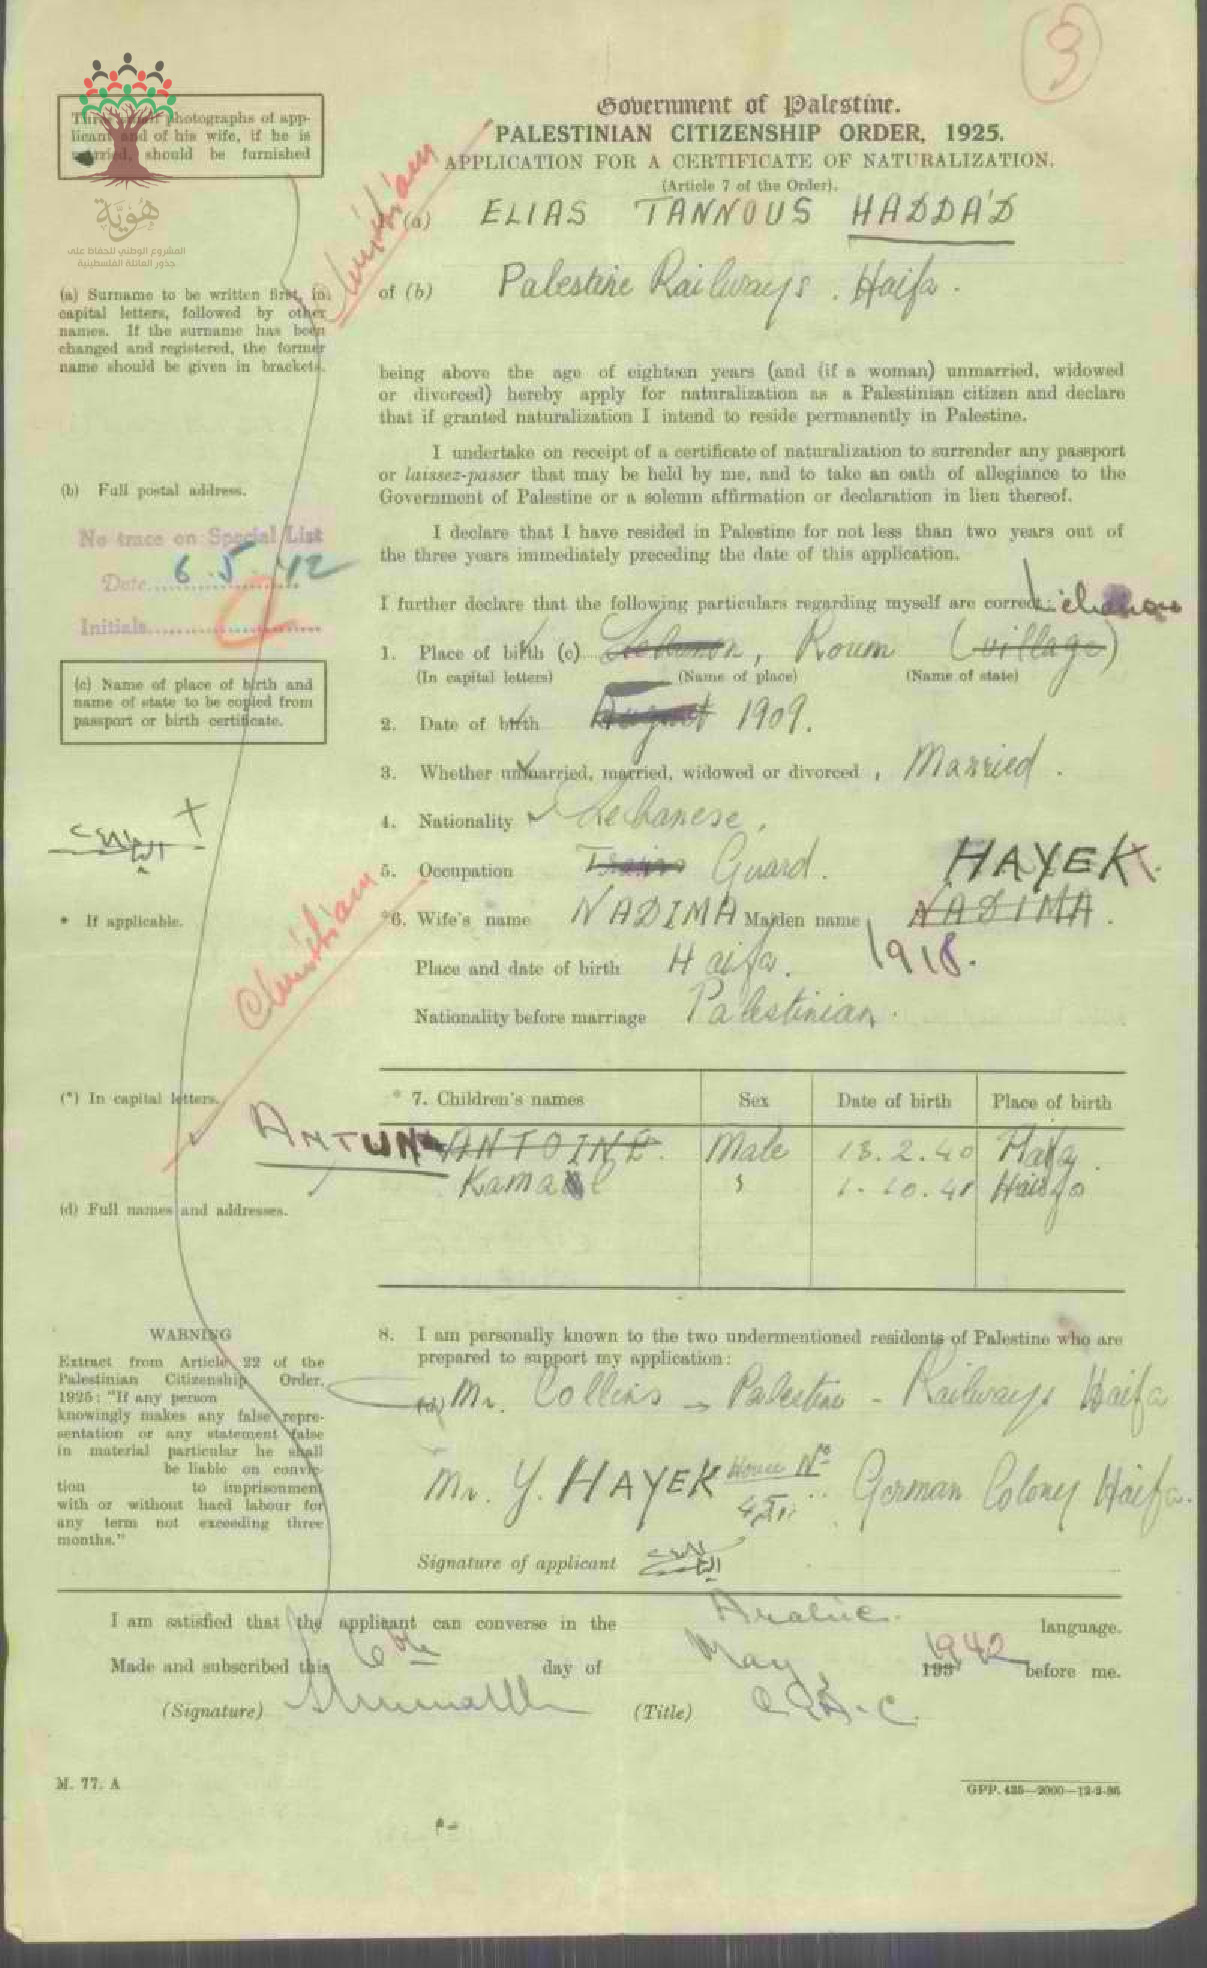 3
Government of Palestine.
PALESTINIAN CITIZENSHIP ORDER, 1925.
APPLICATION FOR A CERTIFICATE OF NATURALIZATION.
(Article 7 of the Order).
Three small photographs of app-
licant and of his wife, if he is
married, should be furnished
هُويَّة
المشروع الوطني للحفاظ على
جذور العائلة الفلسطينية
Christian
I (a) ELIAS TANNOUS HADDAD
of (b) Palestine Railways. Haifa.
(a) Surname to be written first, in
capital letters, followed by other
names. If the surname has been
changed and registered, the former
name should be given in brackets.
being above the age of eighteen years (and (if a woman) unmarried, widowed
or divorced) hereby apply for naturalization as a Palestinian citizen and declare
that if granted naturalization I intend to reside permanently in Palestine.
I undertake on receipt of a certificate of naturalization to surrender any passport
or laissez-passer that may be held by me, and to take an oath of allegiance to the
Government of Palestine or a solemn affirmation or declaration in lieu thereof.
(b) Full postal address.
I declare that I have resided in Palestine for not less than two years out of
the three years immediately preceding the date of this application.
No trace on Special List
Date 6.5.42
Initials
I further declare that the following particulars regarding myself are correct:
Lebanon
1. Place of birth (c) Lebanon, Roum (village)
(In capital letters) (Name of place) (Name of state)
(c) Name of place of birth and
name of state to be copied from
passport or birth certificate.
2. Date of birth August 1909.
3. Whether unmarried, married, widowed or divorced, Married.
4. Nationality Lebanese.
5. Occupation Train Guard.
HAYEK.
* If applicable.
*6. Wife's name NADIMA Maiden name NADIMA.
Place and date of birth Haifa. 1918.
Nationality before marriage Palestinian.
Christian
(*) In capital letters.
* 7. Children's names Sex Date of birth Place of birth
ANTUN ANTOINE. Male 13.2.40 Haifa.
Kamal 1.10.41 Haifa
(d) Full names and addresses.
8. I am personally known to the two undermentioned residents of Palestine who are
prepared to support my application:
(d) Mr. Collins - Palestine - Railways Haifa
Mr. Y. HAYEK House No 45 German Colony Haifa.
WARNING
Extract from Article 22 of the
Palestinian Citizenship Order,
1925: "If any person
knowingly makes any false repre-
sentation or any statement false
in material particular he shall
be liable on convic-
tion to imprisonment
with or without hard labour for
any term not exceeding three
months."
Signature of applicant
I am satisfied that the applicant can converse in the Arabic. language.
Made and subscribed this 6th day of May 193 1942 before me.
(Signature) (Title)
M. 77. A
GPP. 435—2000—12-3-36